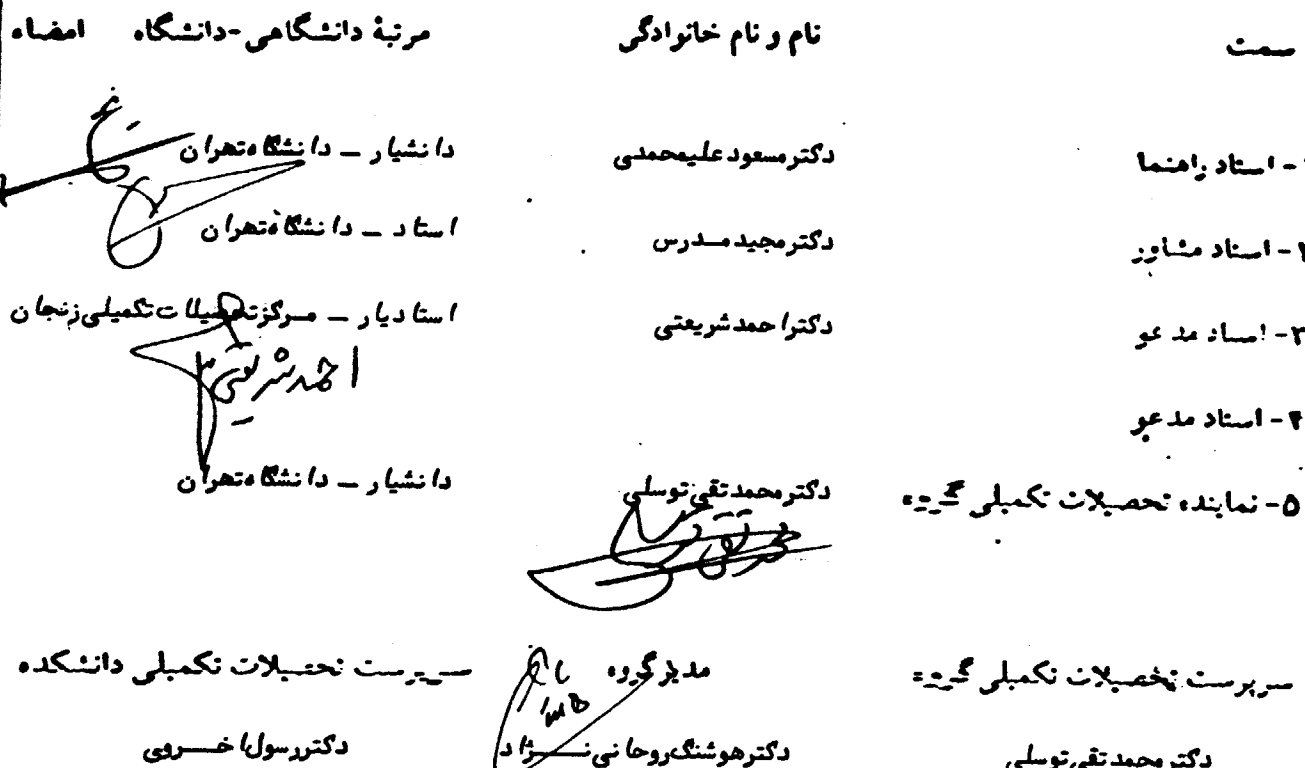 سمت نام و نام خانوادگی مرتبهٔ دانشگاهی-دانشگاه امضاء
۱- استاد راهنما دکتر مسعود علیمحمدی دانشیار – دانشگاه تهران
۲- استاد مشاور دکتر مجید مدرس استاد – دانشگاه تهران
۳- استاد مدعو دکتر احمد شریعتی استادیار – مرکز تحصیلات تکمیلی زنجان
احمد شریعتی
۴- استاد مدعو
۵- نماینده تحصیلات تکمیلی گروه دکتر محمد تقی توسلی دانشیار – دانشگاه تهران
سرپرست تحصیلات تکمیلی گروه مدیر گروه سرپرست تحصیلات تکمیلی دانشکده
دکتر محمد تقی توسلی دکتر هوشنگ روحانی نژاد دکتر رسول اخروی